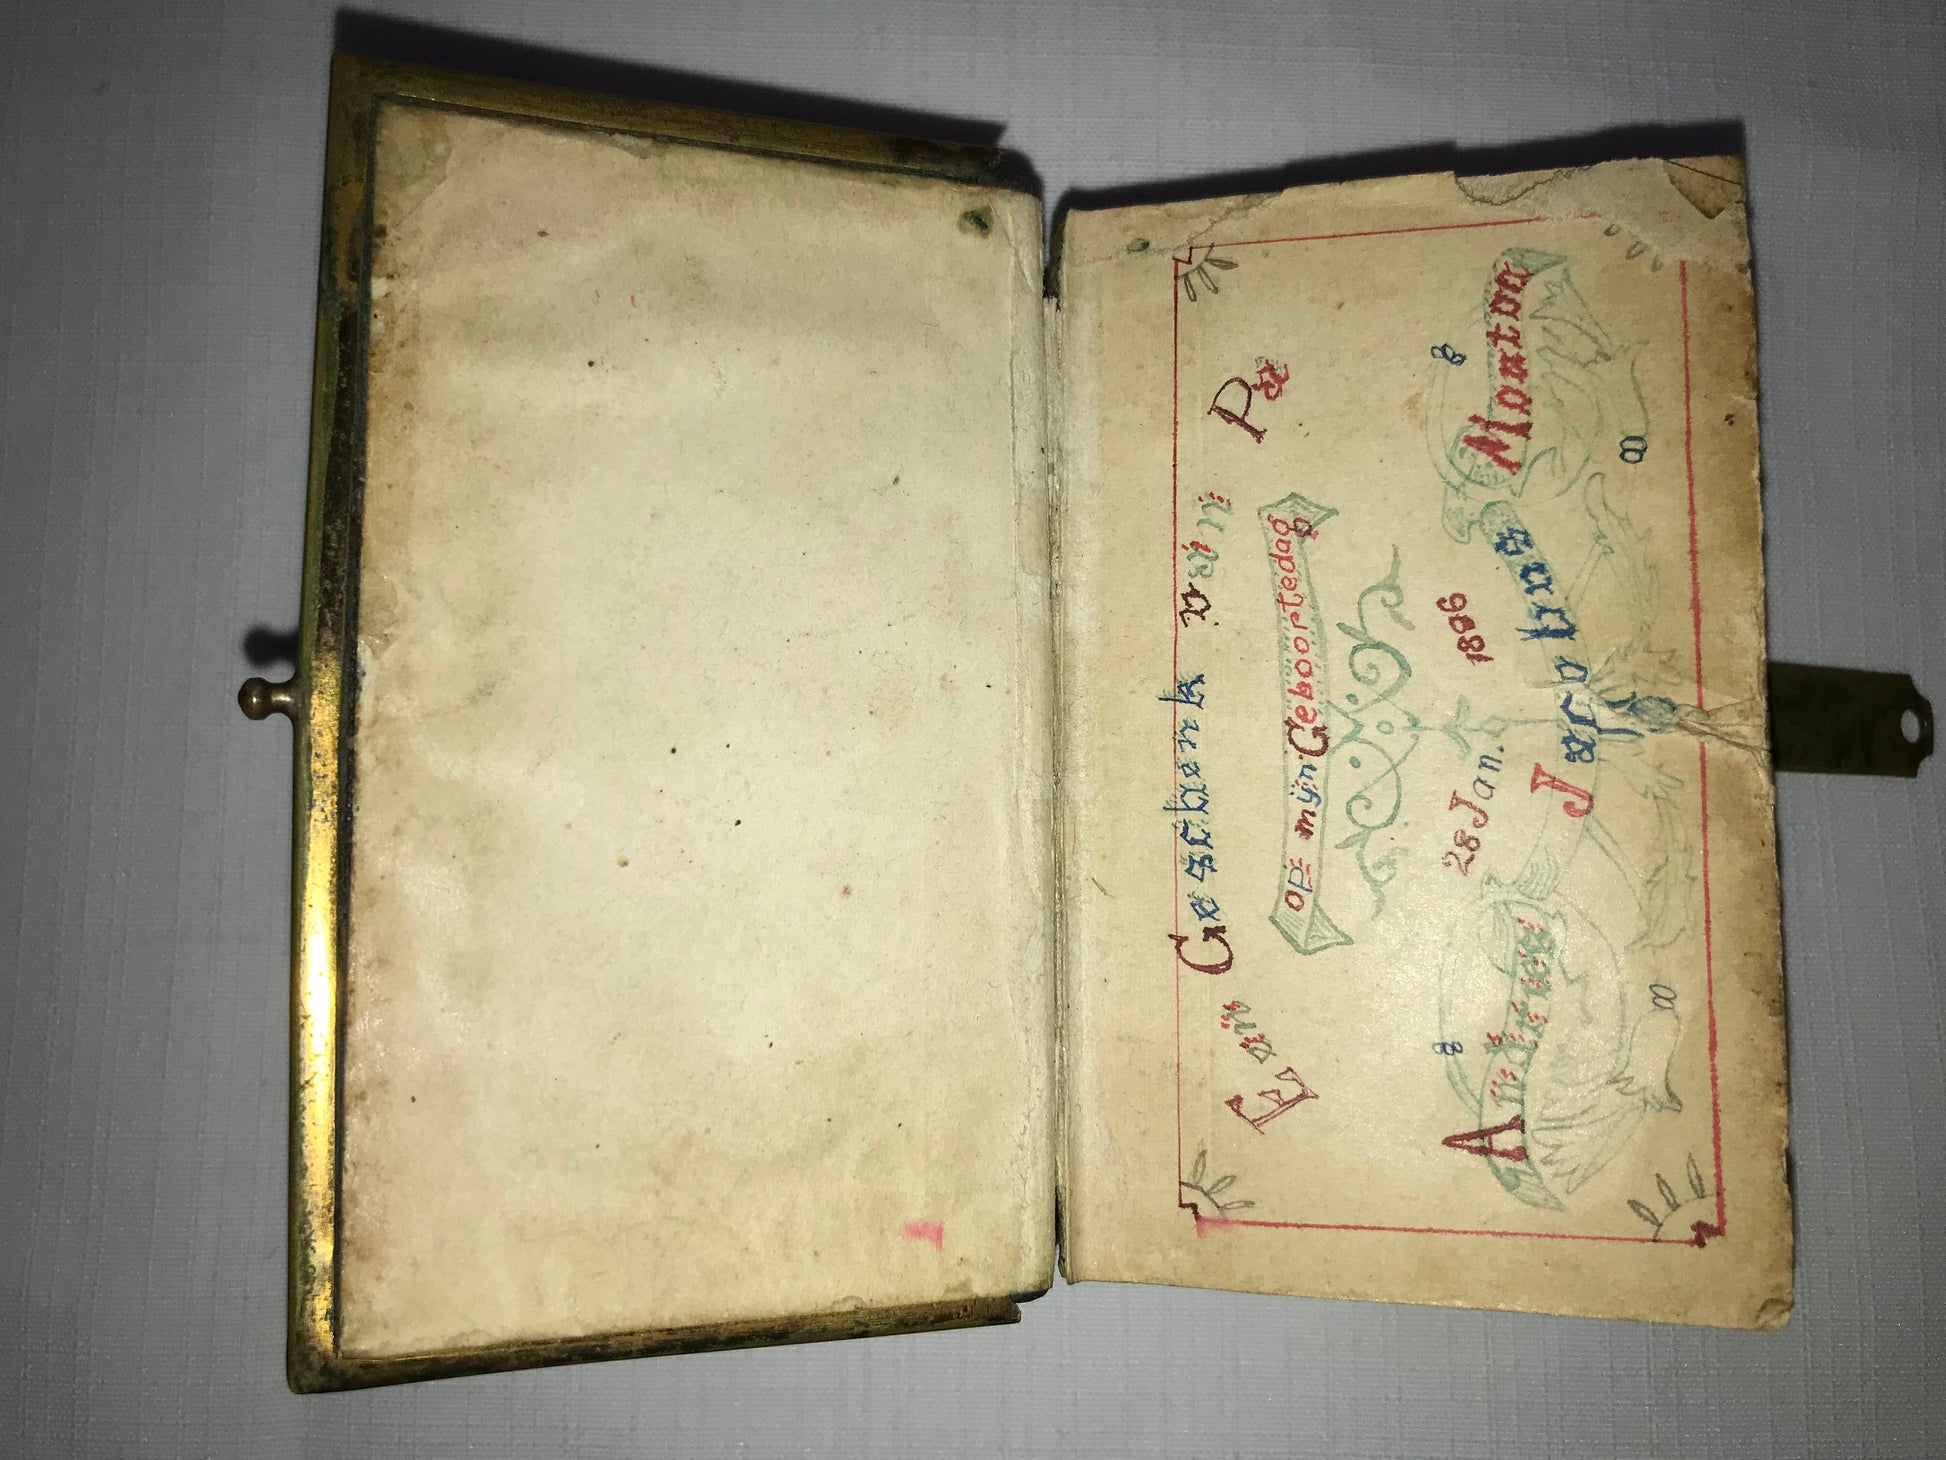 Een Geschenk van Pa
op mÿn Geboortedag
28 Jan. 1886
Andries Jacobus Mouton